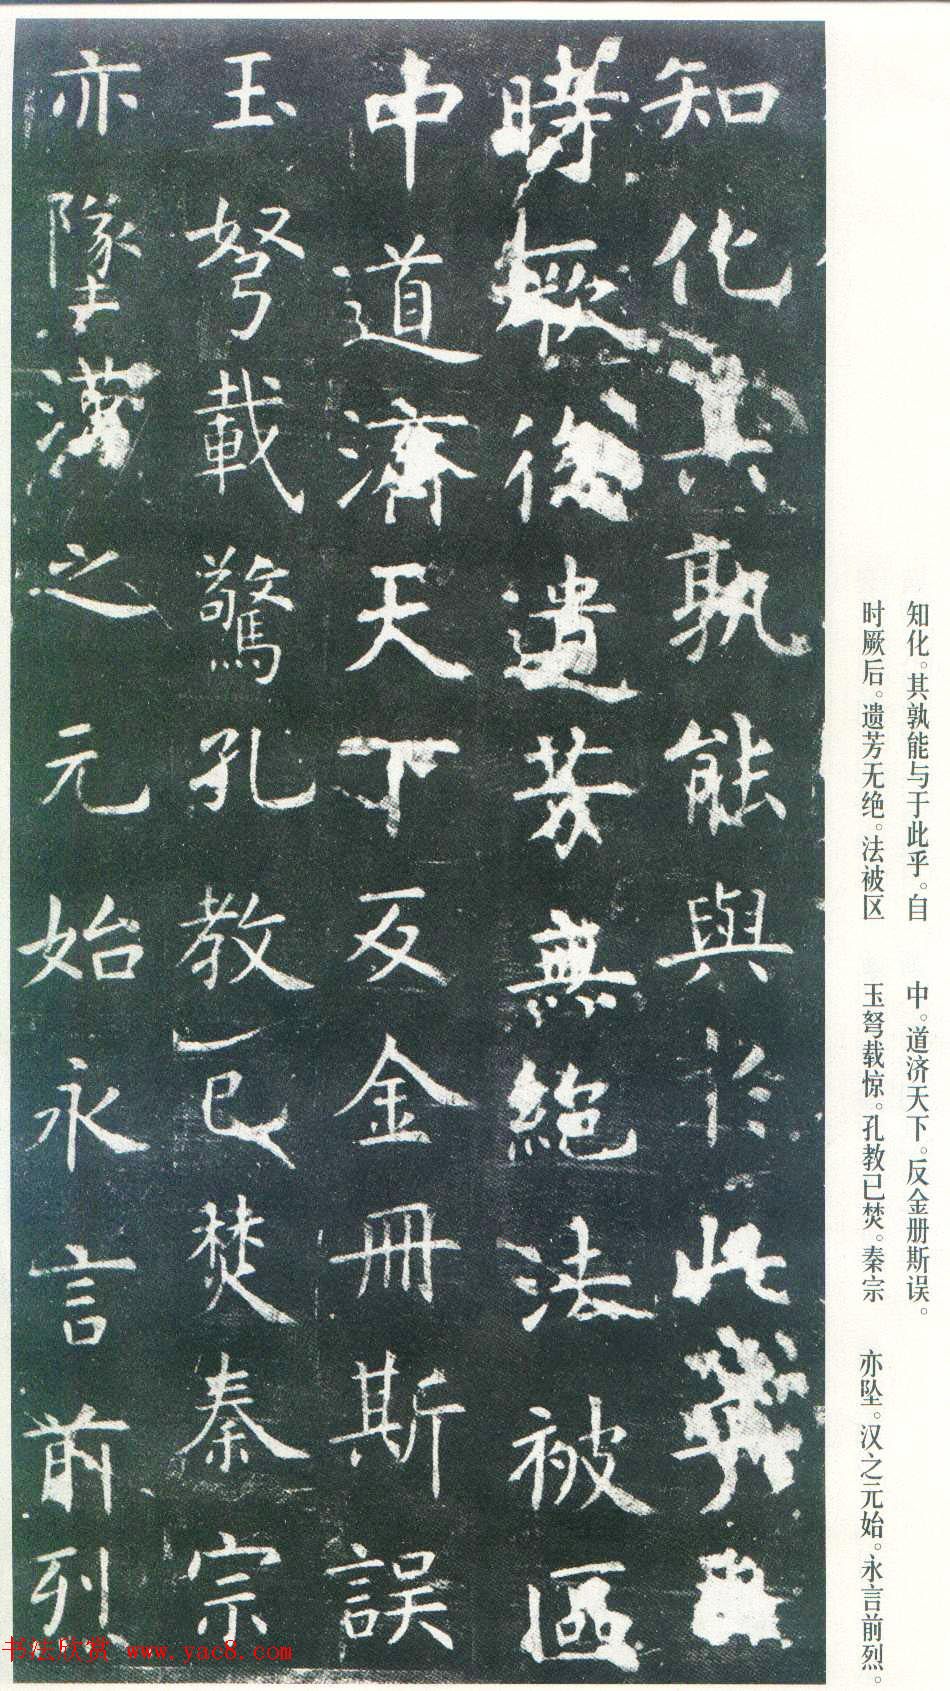 知化其孰能與於此乎自
時厥後遺芳無絶法被區
中道濟天下反金冊斯誤
玉弩載驚孔教已焚秦宗
亦墜漢之元始永言前列
知化。其孰能与于此乎。自
时厥后。遗芳无绝。法被区
中。道济天下。反金册斯误。
玉弩载惊。孔教已焚。秦宗
亦坠。汉之元始。永言前烈。
书法欣赏 www.yac8.com